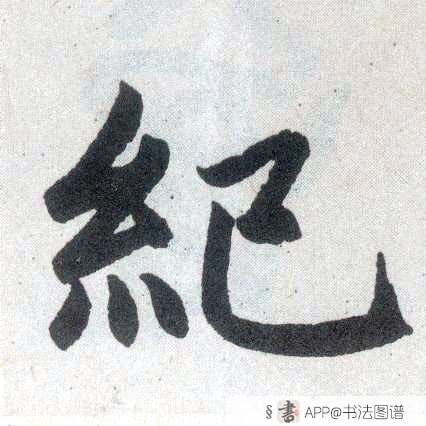 紀
§ 書 APP@书法图谱